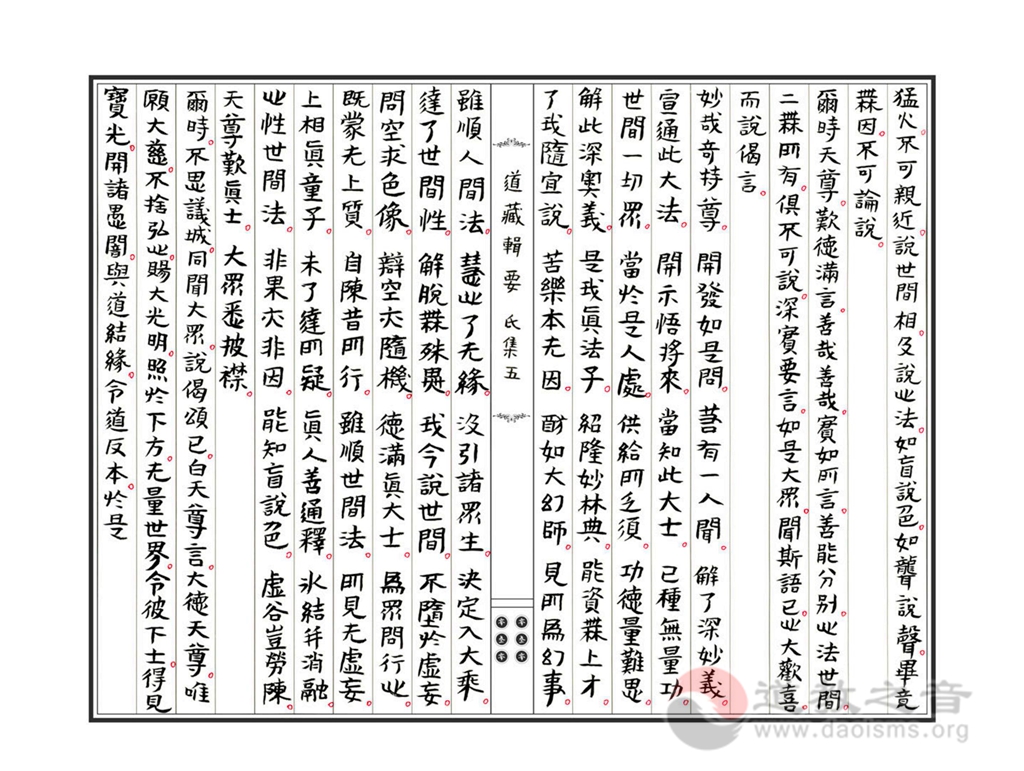 猛火不可親近。說世間相。及說㞢法。如盲說色。如聾說聲。畢竟
橆因。不可論說。
爾時天尊。歎德滿言。善哉善哉。實如所言。善能分別。㞢法世間
二橆所有。俱不可說。深實要言。如是大眾。聞斯語已。㞢大歡喜
而說偈言。
妙哉奇特尊。開發如是問。若有一人聞。解了深妙義。
宣通此大法。開示悟將來。當知此大士。已種無量功。
世間一切眾。當扵是人處。供給所乏須。功德量難思。
解此深奧義。是我真法子。紹隆妙林典。能資橆上才。
了我隨宜說。苦樂本无因。酧如大幻師。見所為幻事。
道藏輯要 氐集五
零零
叁叁
零零
雖順人間法。慧㞢了无緣。汲引諸眾生。決定入大乘。
達了世間性。解脫橆殊異。我今說世間。不墮扵虛妄。
問空求色像。辯空亦隨機。德滿眞大士。為眾問行㞢。
既蒙无上質。自陳昔所行。雖順世間法。所見无虛妄。
上相眞童子。未了達所疑。眞人善通釋。氷結幷消融。
㞢性世間法。非果亦非因。能知盲說色。虛谷豈勞陳。
天尊歎眞士。大眾悉披襟。
爾時。不思議城。同聞大眾。說偈頌已。白天尊言。大德天尊。唯
願大慈。不捨弘㞢。賜大光明。照扵下方。无量世界。令彼下士。得見
寶光。開諸愚闇。與道結緣。令道反本。扵是
道教之音
www.daoisms.org